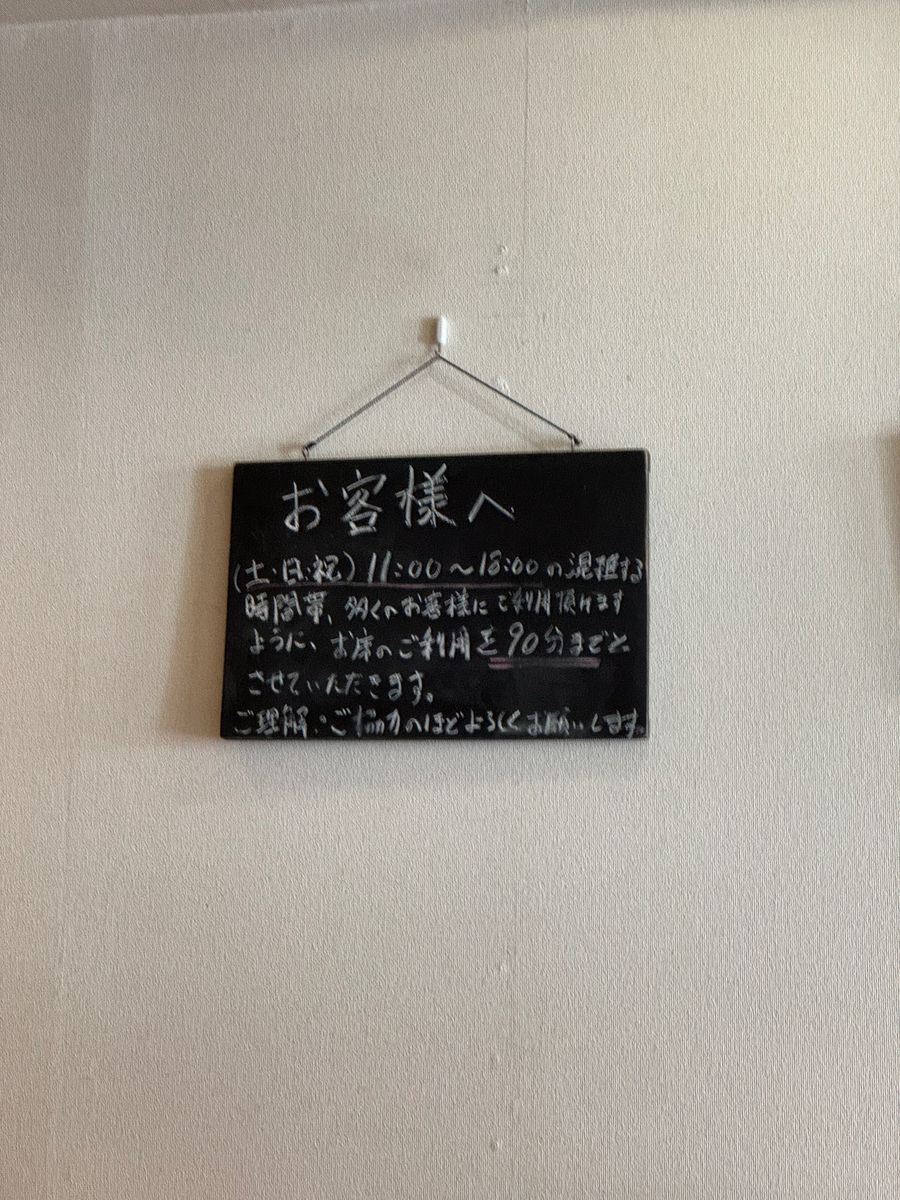 お客様へ
(土・日・祝) 11:00～18:00の混雑する
時間帯、多くのお客様にご利用頂けます
ように、お席のご利用を90分までと
させていただきます。
ご理解・ご協力のほどよろしくお願いします。